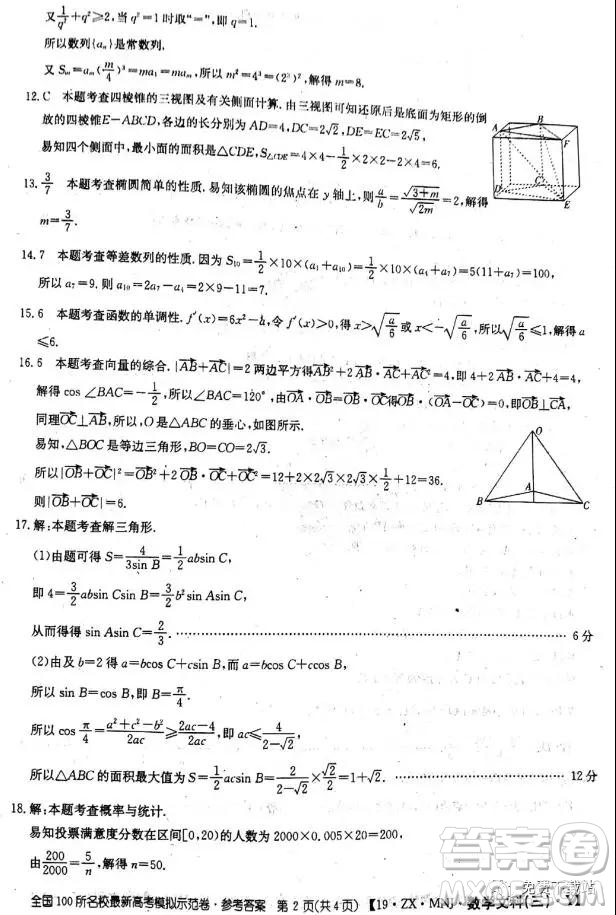 又1/q²+q²≥2，当 q²=1时取“=”，即 q=1.
所以数列{aₙ}是常数列.
又 Sₘ=aₘ(m/4)³=ma₁=maₘ，所以 m²=4³=(2³)²，解得 m=8.
12.C 本题考查四棱锥的三视图及有关侧面计算.由三视图可知还原后是底面为矩形的倒
放的四棱锥E-ABCD，各边的长分别为 AD=4，DC=2√2，DE=EC=2√5，
易知四个侧面中，最小面的面积是△CDE，S△CDE=4×4-1/2×2×2-2×4=6.
A B F D C E
13.3/7 本题考查椭圆简单的性质.易知该椭圆的焦点在 y 轴上，则a/b=√(3+m)/√(2m)=2，解得
m=3/7.
14.7 本题考查等差数列的性质.因为 S₁₀=1/2×10×(a₁+a₁₀)=1/2×10×(a₄+a₇)=5(11+a₇)=100，
所以 a₇=9.则 a₁₀=2a₇-a₄=2×9-11=7.
15.6 本题考查函数的单调性.f′(x)=6x²-a，令f′(x)>0，得 x>√(a/6) 或 x<-√(a/6)，所以√(a/6)≤1，解得 a
≤6.
16.6 本题考查向量的综合.|AB→+AC→|=2 两边平方得AB→²+2 AB→·AC→+AC→²=4，即 4+2 AB→·AC→+4=4，
解得 cos ∠BAC=-1/2，所以∠BAC=120°，由OA→·OB→=OB→·OC→得OB→·(OA→-OC→)=0，即OB→⊥CA→，
同理OC→⊥AB→，所以，O 是△ABC 的垂心，如图所示.
易知，△BOC 是等边三角形，BO=CO=2√3.
所以|OB→+OC→|²=OB→²+2 OB→·OC→+OC→²=12+2×2√3×2√3×1/2+12=36.
则|OB→+OC→|=6.
O A B C
17.解：本题考查解三角形.
(1)由题可得 S=4/(3sin B)=1/2 absin C，
即 4=3/2 absin Csin B=3/2 b²sin C，
从而得得 sin Asin C=2/3. 6 分
(2)由及 b=2 得 a=bcos C+csin B，而 a=bcos C+ccos B，
所以 sin B=cos B，即 B=π/4.
所以 cos π/4=(a²+c²-b²)/2ac≥(2ac-4)/2ac，即 ac≤4/(2-√2)，
所以△ABC 的面积最大值为 S=1/2 acsin B=2/(2-√2)×√2/2=1+√2. 12 分
18.解：本题考查概率与统计.
易知投票满意度分数在区间[0,20)的人数为 2000×0.005×20=200，
由200/2000=5/n，解得 n=50.
全国 100 所名校最新高考模拟示范卷·参考答案 第 2 页(共 4 页)【19·ZX·MNJ·数学文科(三)
答案圈